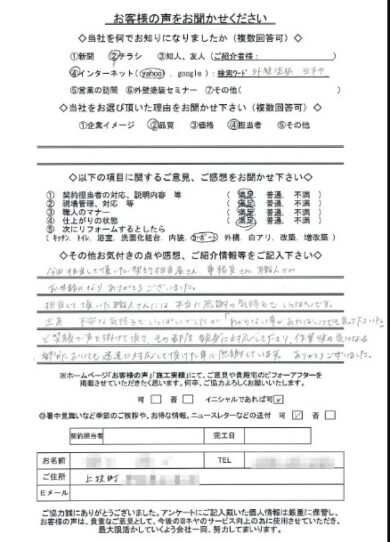 お客様の声をお聞かせください
◇当社を何でお知りになりましたか(複数回答可)◇
①新聞 ②チラシ ③知人、友人(ご紹介者: )
④インターネット(yahoo, google): 検索ワード 外壁塗装 ヨネヤ
⑤営業の訪問 ⑥外壁塗装セミナー ⑦その他( )
◇当社をお選び頂いた理由をお聞かせ下さい(複数回答可)◇
①企業イメージ ②品質 ③価格 ④担当者 ⑤その他
◇以下の項目に関するご意見、ご感想をお聞かせ下さい◇
① 契約担当者の対応、説明内容 等 ( 満足 普通 不満 )
② 現場管理、対応 等 ( 満足 普通 不満 )
③ 職人のマナー ( 満足 普通 不満 )
④ 仕上がりの状態 ( 満足 普通 不満 )
⑤ 次にリフォームするとしたら
(キッチン、トイレ、浴室、洗面化粧台、内装、カーポート、外構、白アリ、改築、増改築)
◇その他お気付きの点や感想、ご紹介情報等をご記入下さい◇
今回担当して頂いた契約担当者さん 事務員さん 職人さん
お世話になりありがとうございました。
担当して頂いた職人さんには本当に感謝の気持ちでいっぱいです。
正直 不安な気持ちでいっぱいでしたが「わからない事があればいつでも言って下さいね」
と笑顔で声を掛けて頂き、その都度 親切に対応して下さり、作業後の気になる
部分においても迅速に対応して頂けた事に感謝しています。ありがとうございました。
※ホームページ「お客様の声」「施工実績」にて、ご意見や貴殿宅のビフォーアフターを
掲載させていただきたく思います。何卒、ご協力よろしくお願いします。
可 □ 否 □ イニシャルであれば可 ☑
◎暑中見舞いなど季節のご挨拶や、お得な情報、ニュースレターなどの送付 可 ☑ 否 □
契約担当者 完工日
お名前 TEL
ご住所 上板町
Eメール
ご協力誠にありがとうございました。アンケートにご記入戴いた個人情報は厳重に保管し、
お客様の声は、貴重なご意見として、今後のヨネヤのサービス向上の為に使用させていただき、
最大限活かしていくよう会社一同、努力してまいります。